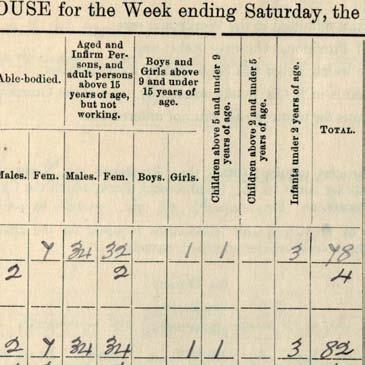 OUSE for the Week ending Saturday, the
Able-bodied.
Aged and
Infirm Per-
sons, and
adult persons
above 15
years of age,
but not
working.
Boys and
Girls above
9 and under
15 years of
age.
Children above 5 and under 9
years of age.
Children above 2 and under 5
years of age.
Infants under 2 years of age.
TOTAL.
Males. Fem. Males. Fem. Boys. Girls.
7 34 32 1 1 3 78
2 2 4
2 7 34 34 1 1 3 82